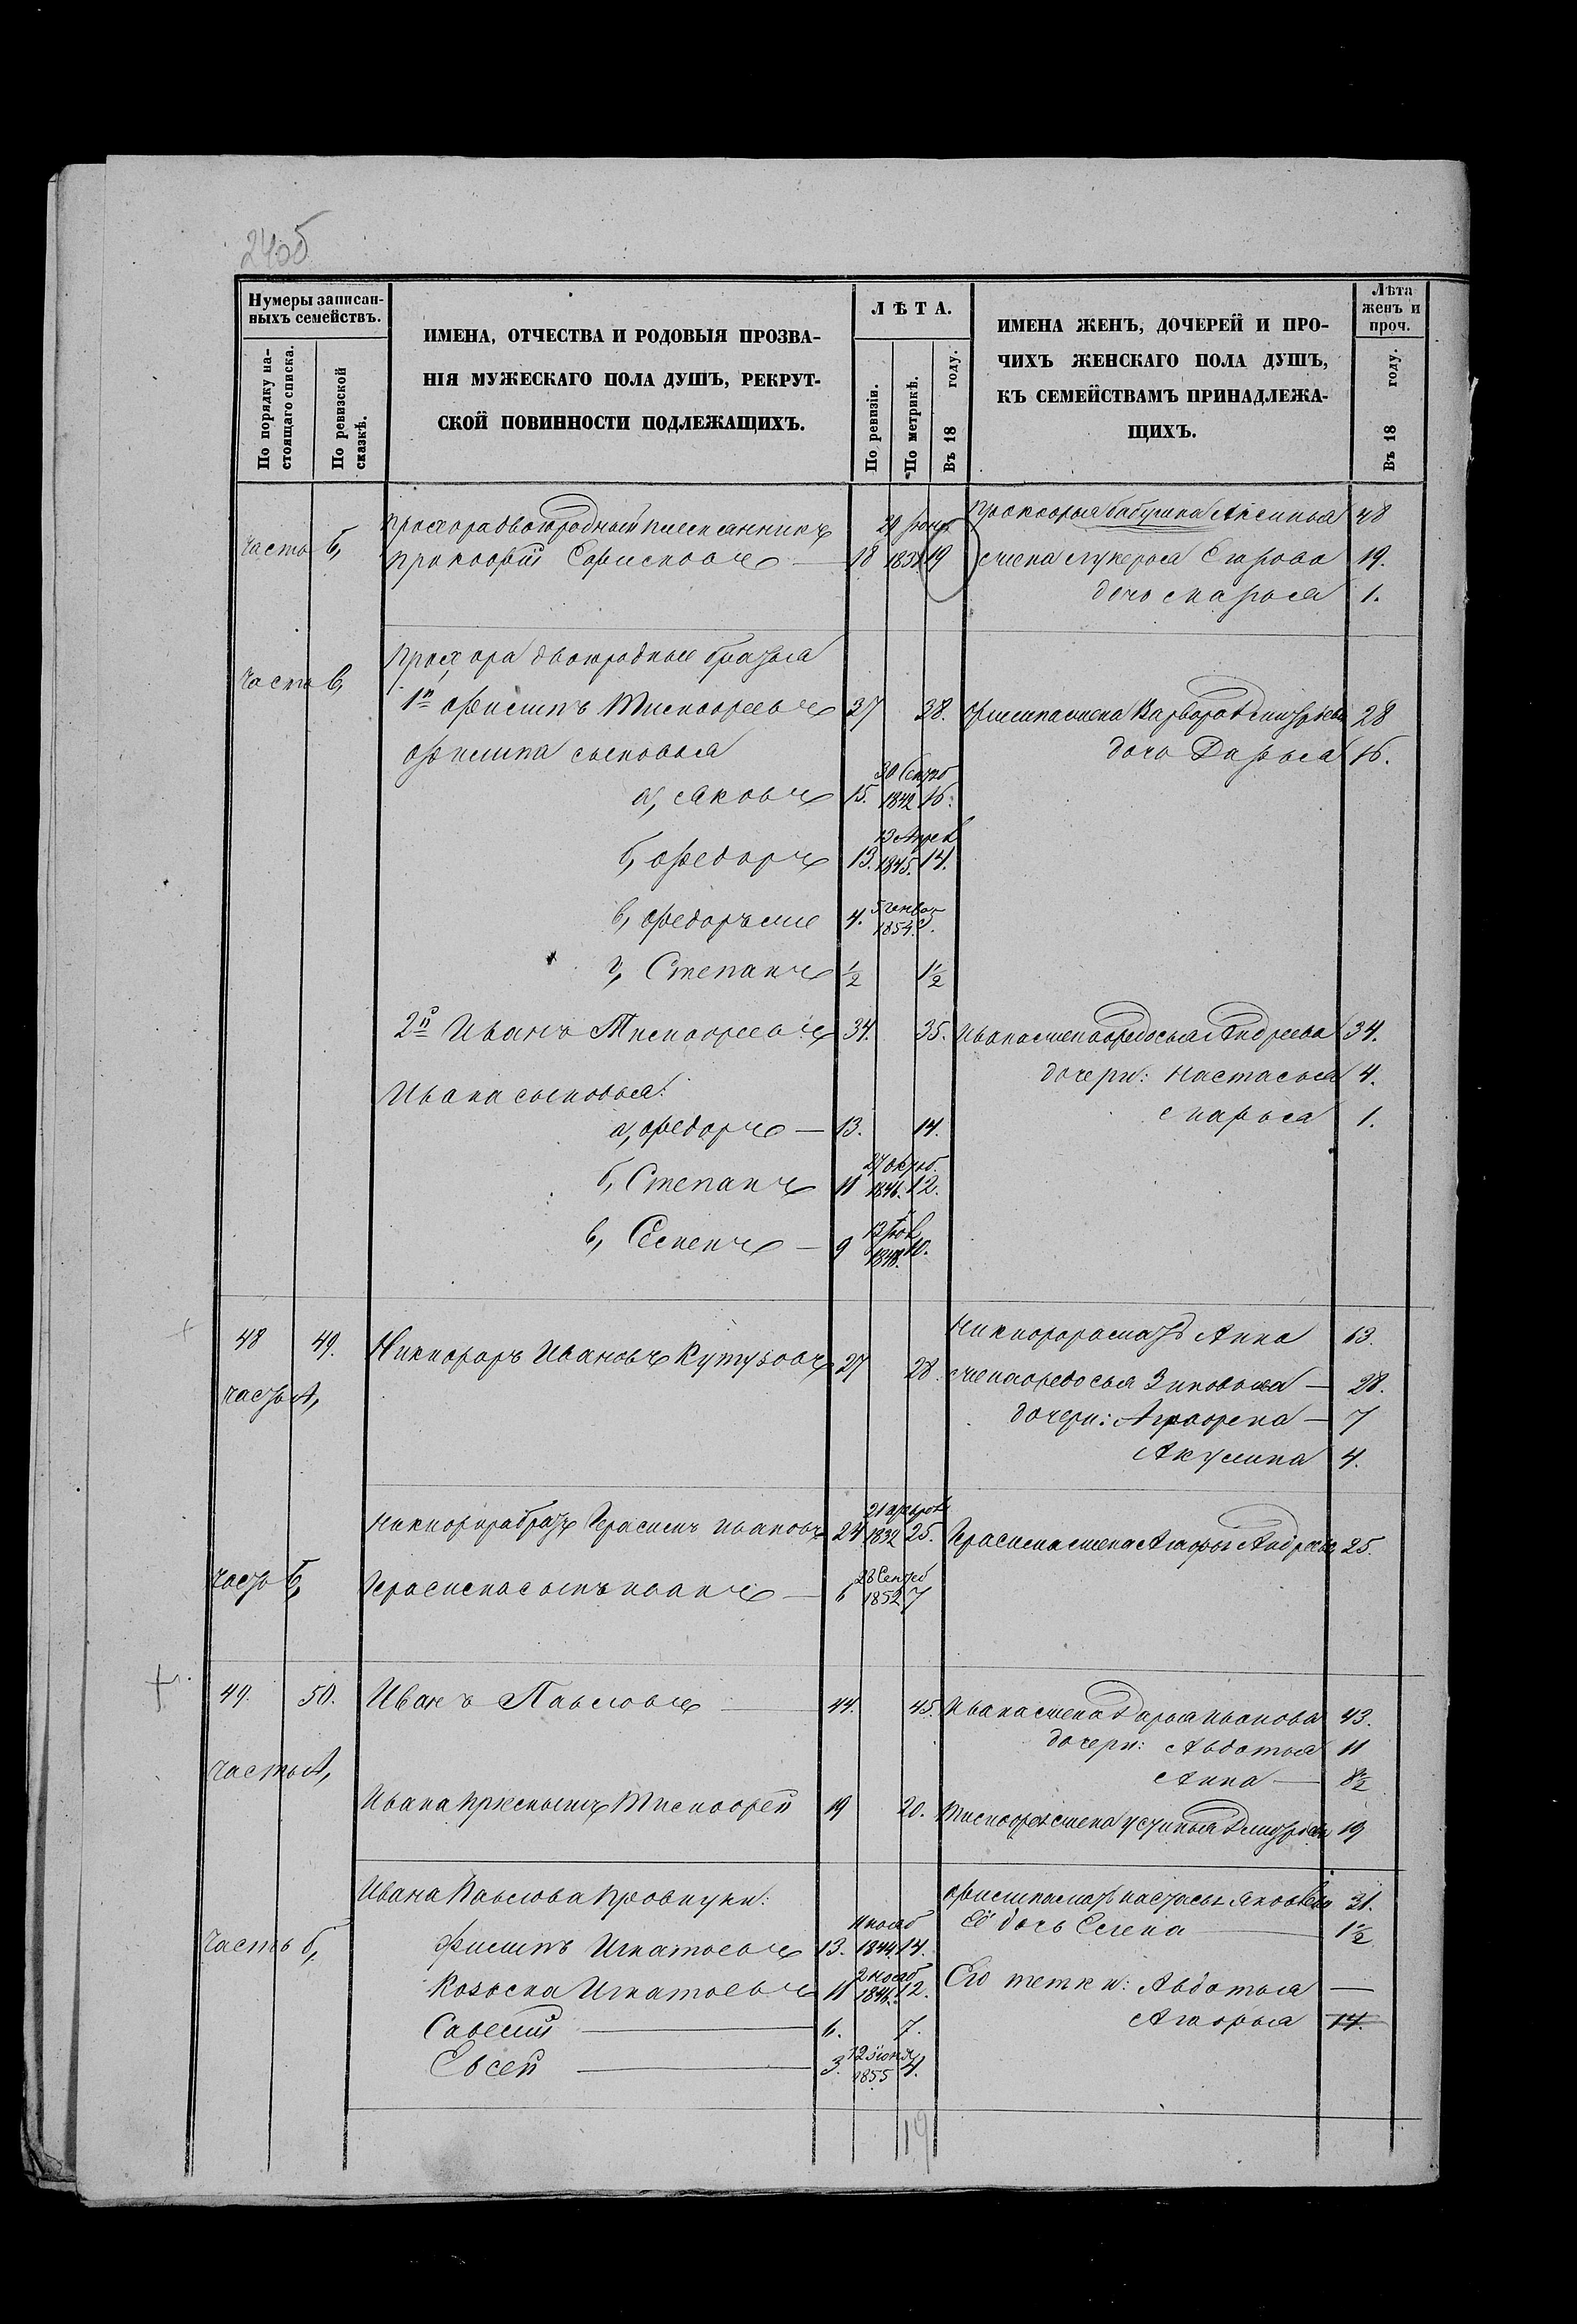 24об
Нумеры записан-
ныхъ семействъ.
По порядку на-
стоящаго списка.
По ревизской
сказкѣ.
ИМЕНА, ОТЧЕСТВА И РОДОВЫЯ ПРОЗВА-
НІЯ МУЖЕСКАГО ПОЛА ДУШЪ, РЕКРУТ-
СКОЙ ПОВИННОСТИ ПОДЛЕЖАЩИХЪ.
ЛѢТА.
По ревизіи.
По метрикѣ.
Въ 18 году.
ИМЕНА ЖЕНЪ, ДОЧЕРЕЙ И ПРО-
ЧИХЪ ЖЕНСКАГО ПОЛА ДУШЪ,
КЪ СЕМЕЙСТВАМЪ ПРИНАДЛЕЖА-
ЩИХЪ.
Лѣта
женъ и
проч.
Въ 18 году.
Прохора двоюродный племянникъ 29 Прокофья бабушка Аксинья 48
Часть б, Прокофій 18 19 жена Лукерья Егорова 19.
дочь Марья 1.
Прохора двоюродные братья
Часть в,
1й Филипъ Тимофеевъ 37 38. Филипа жена Варвара Дмитрева 28
Филипа сыновья дочь Дарья 16.
30 Сентб
а, Яковъ 15. 1842 16.
13 Апрел
б, Федоръ 13. 1845. 14.
в, Федоръ же 4. 5 генвар 1854. 5.
г, Степанъ 1/2 1 1/2
2й Иванъ Тимофеевъ 34. 35. Ивана жена Федосья Андреева 34.
дочери: Настасья 4.
Ивана сыновья: Марья 1.
а, Федоръ — 13. 14.
27 октб.
б, Степанъ 11 1846. 12.
в, Семенъ — 9 1848. 10.
48 49. Никифоръ Ивановъ Кутузовъ 27 28. Никифора мать Анна 63.
часть А, жена Федосья Зиновьева — 28.
дочери: Аграфена — 7
Акулина 4.
Никифора братъ Герасимъ Ивановъ 24 1832 25. Герасима жена Агафья Андреева 25.
28 Сентб
часть б, Герасима сынъ Иванъ — 6 1852 7
49. 50. Иванъ Павловъ 44. 45. Ивана жена Дарья Иванова 43.
дочери: Авдотья 11
Часть А, Анна — 8 1/2
Ивана Тимофей 19 20. Тимофея жена Устинья Дмитрева 19
Ивана Павлова внуки: Филипа мать Настасья Яковлева 31.
11 нояб Её дочь Елена 1 1/2
Часть б, Филипъ Игнатьевъ 13. 1844. 14.
2 нояб
Козьма Игнатьевъ 11 1846. 12. Его тетки: Авдотья —
Савелий 6. 7. Агафья 14.
Евсей 3. 12 іюня 1855 4.
19